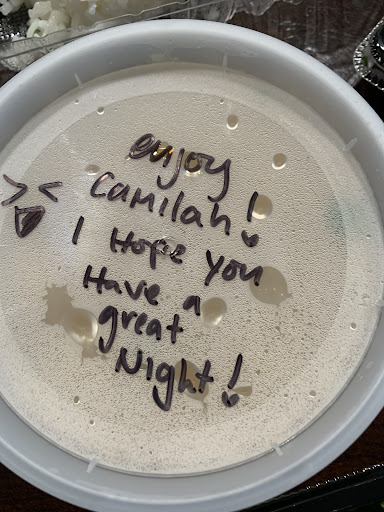 enjoy
Camilah!
I Hope You
Have a
great
Night!